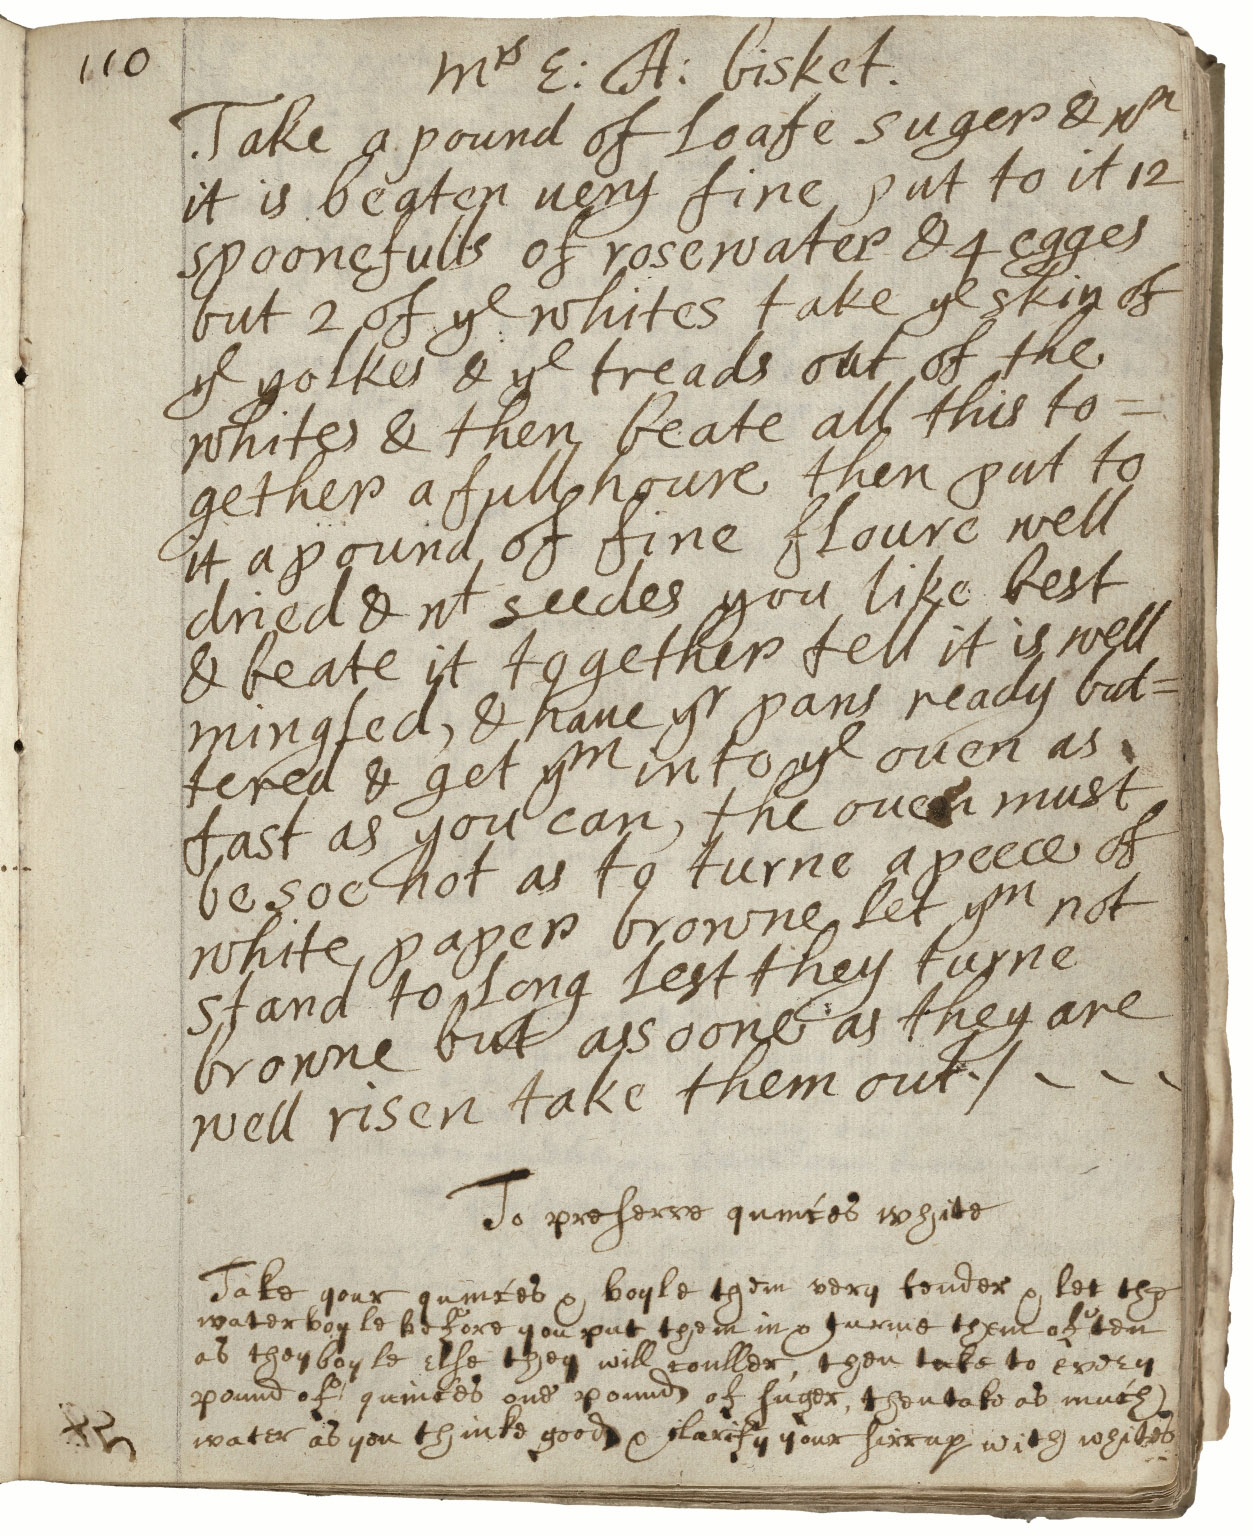 110
Mrs E: A: bisket.
Take a pound of Loafe suger & wn
it is beaten uery fine put to it 12
spoonefulls of rosewater & 4 egges
but 2 of ye whites take ye skin of
ye yolkes & ye treads out of the
whites & then beate all this to=
gether a full houre then put to
it a pound of fine floure well
dried & wt seedes you like best
& beate it together tell it is well
mingled, & haue yr pans ready but=
tered & get ym into ye ouen as
fast as you can, the ouen must
be soe hot as to turne a peece of
white paper browne let ym not
stand to Long lest they turne
browne but assoone as they are
well risen take them out./
To preserve quinces white
Take your quinces & boyle them very tender & let the
water boyle before you put them in & turne them often
as they boyle else they will couller, then take to every
pound of quinces one pound of suger, then take as much
water as you thinke good & clarify your sirrup with whites